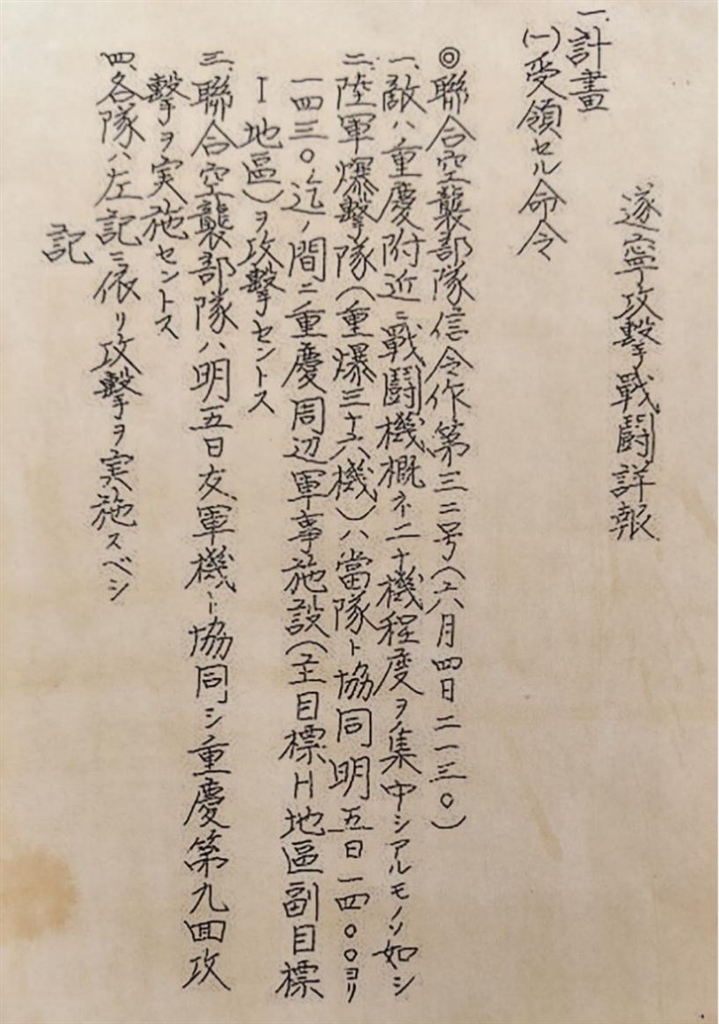 遂寧攻撃戰鬪詳報
一、計畫
(一)受領セル命令
◎聯合空襲部隊信令作第三二号(六月四日二一三〇)
一、敵ハ重慶附近ニ戰鬪機概ネ二十機程度ヲ集中シアルモノノ如シ
二、陸軍爆撃隊(重爆三十六機)ハ當隊ト協同明五日一四〇〇ヨリ
一四三〇迄ノ間ニ重慶周辺軍事施設(主目標H地區副目標
I地區)ヲ攻撃セントス
三、聯合空襲部隊ハ明五日友軍機ト協同シ重慶第九回攻
撃ヲ実施セントス
四、各隊ハ左記ニ依リ攻撃ヲ実施スベシ
記